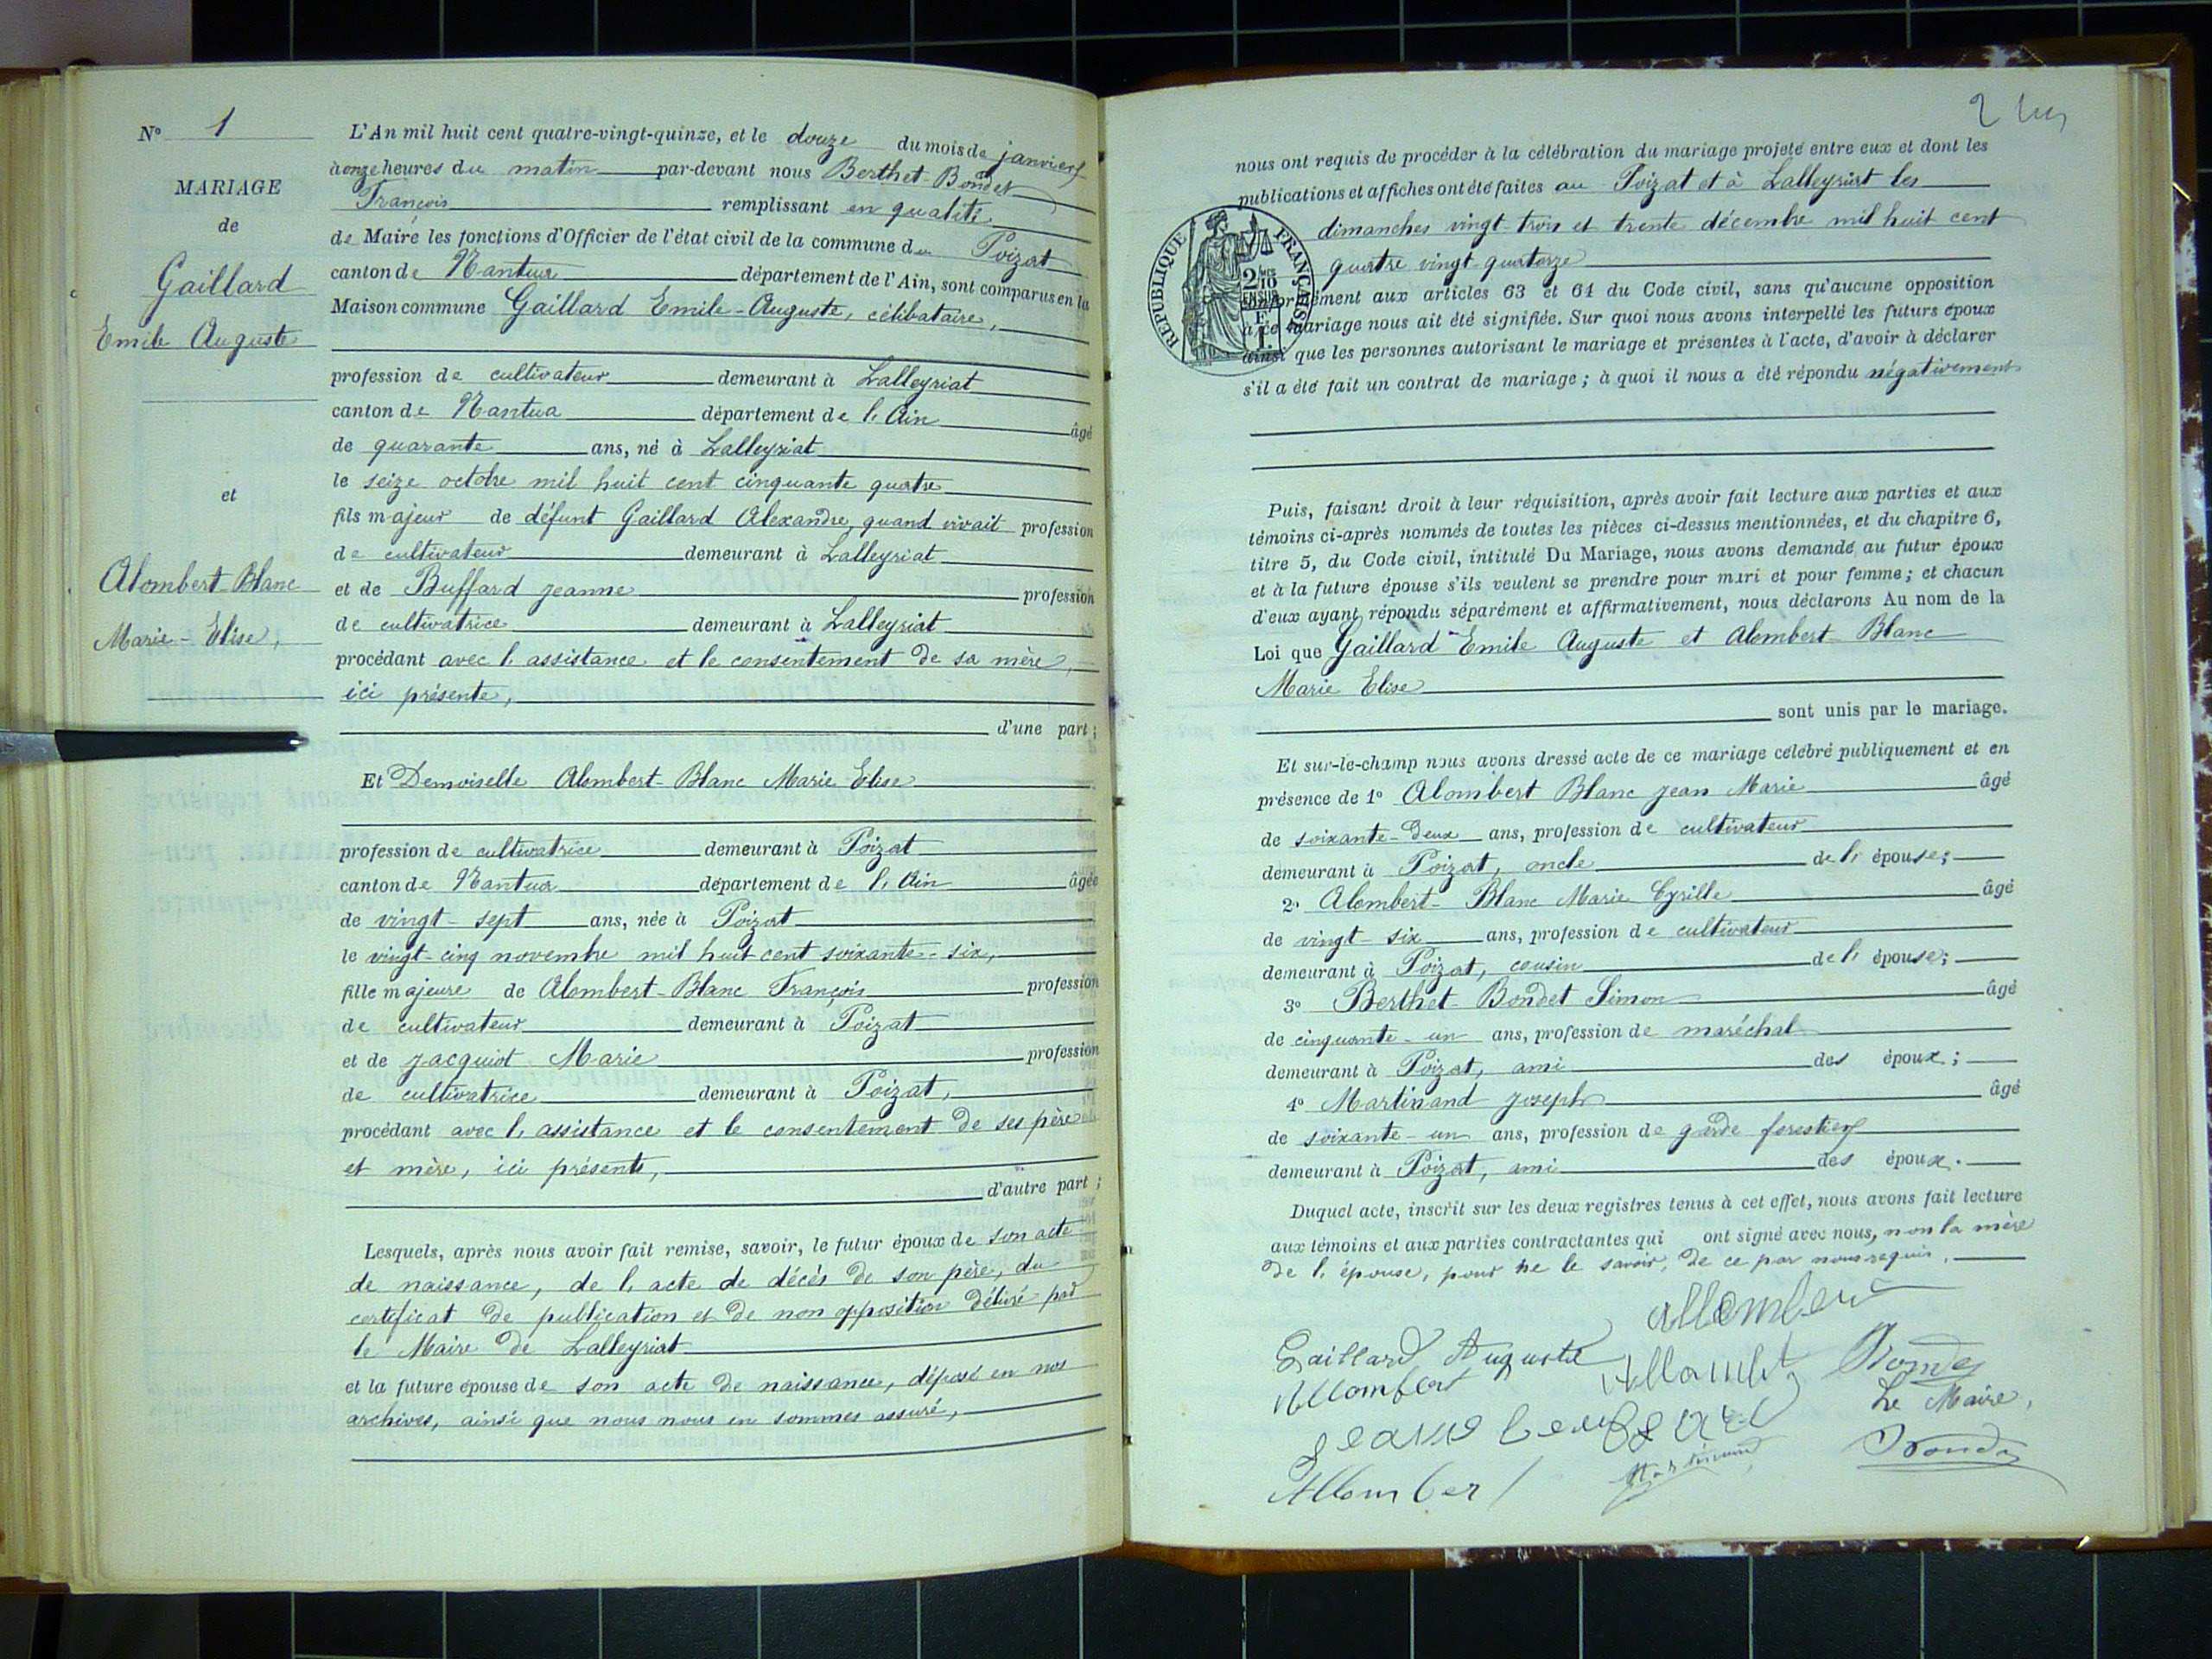 N° 1
MARIAGE
de
Gaillard
Emile Auguste
et
Alombert-Blanc
Marie-Elise,
L'An mil huit cent quatre-vingt-quinze, et le douze du mois de janvier
à onze heures du matin par-devant nous Berthet-Bondet
François remplissant en qualité
de Maire les fonctions d'Officier de l'état civil de la commune du Poizat
canton de Nantua département de l'Ain, sont comparus en la
Maison commune Gaillard Emile-Auguste, célibataire,
profession de cultivateur demeurant à Lalleyriat
canton de Nantua département de l'Ain âgé
de quarante ans, né à Lalleyriat
le seize octobre mil huit cent cinquante quatre
fils majeur de défunt Gaillard Alexandre, quand vivait profession
de cultivateur demeurant à Lalleyriat
et de Buffard Jeanne profession
de cultivatrice demeurant à Lalleyriat
procédant avec l'assistance et le consentement de sa mère,
ici présente,
d'une part;
Et Demoiselle Alombert-Blanc Marie Elise
profession de cultivatrice demeurant à Poizat
canton de Nantua département de l'Ain âgée
de vingt-sept ans, née à Poizat
le vingt-cinq novembre mil huit cent soixante-six,
fille majeure de Alombert-Blanc François profession
de cultivateur demeurant à Poizat
et de Jacquiot Marie profession
de cultivatrice demeurant à Poizat,
procédant avec l'assistance et le consentement de ses père
et mère, ici présents,
d'autre part;
Lesquels, après nous avoir fait remise, savoir, le futur époux de son acte
de naissance, de l'acte de décès de son père, du
certificat de publication et de non opposition délivré par
le Maire de Lalleyriat
et la future épouse de son acte de naissance, déposé en nos
archives, ainsi que nous nous en sommes assuré,
2
nous ont requis de procéder à la célébration du mariage projeté entre eux et dont les
publications et affiches ont été faites au Poizat et à Lalleyriat les
dimanches vingt-trois et trente décembre mil huit cent
quatre vingt-quatorze
RÉPUBLIQUE FRANÇAISE
conformément aux articles 63 et 64 du Code civil, sans qu'aucune opposition
à ce mariage nous ait été signifiée. Sur quoi nous avons interpellé les futurs époux
ainsi que les personnes autorisant le mariage et présentes à l'acte, d'avoir à déclarer
s'il a été fait un contrat de mariage; à quoi il nous a été répondu négativement
Puis, faisant droit à leur réquisition, après avoir fait lecture aux parties et aux
témoins ci-après nommés de toutes les pièces ci-dessus mentionnées, et du chapitre 6,
titre 5, du Code civil, intitulé Du Mariage, nous avons demandé au futur époux
et à la future épouse s'ils veulent se prendre pour mari et pour femme; et chacun
d'eux ayant répondu séparément et affirmativement, nous déclarons Au nom de la
Loi que Gaillard Emile Auguste et Alombert-Blanc
Marie Elise
sont unis par le mariage.
Et sur-le-champ nous avons dressé acte de ce mariage célébré publiquement et en
présence de 1° Alombert Blanc Jean Marie âgé
de soixante-deux ans, profession de cultivateur
demeurant à Poizat, oncle de l'épouse;
2° Alombert-Blanc Marie Cyrille âgé
de vingt-six ans, profession de cultivateur
demeurant à Poizat, cousin de l'épouse;
3° Berthet-Bondet Simon âgé
de cinquante-un ans, profession de maréchal
demeurant à Poizat, ami des époux;
4° Martinand Joseph âgé
de soixante-un ans, profession de garde forestier
demeurant à Poizat, ami des époux.
Duquel acte, inscrit sur les deux registres tenus à cet effet, nous avons fait lecture
aux témoins et aux parties contractantes qui ont signé avec nous, non la mère
de l'épouse, pour ne le savoir, de ce par nous requis.
Gaillard Auguste
Allombert
Le Maire,
Martinand
Allomber